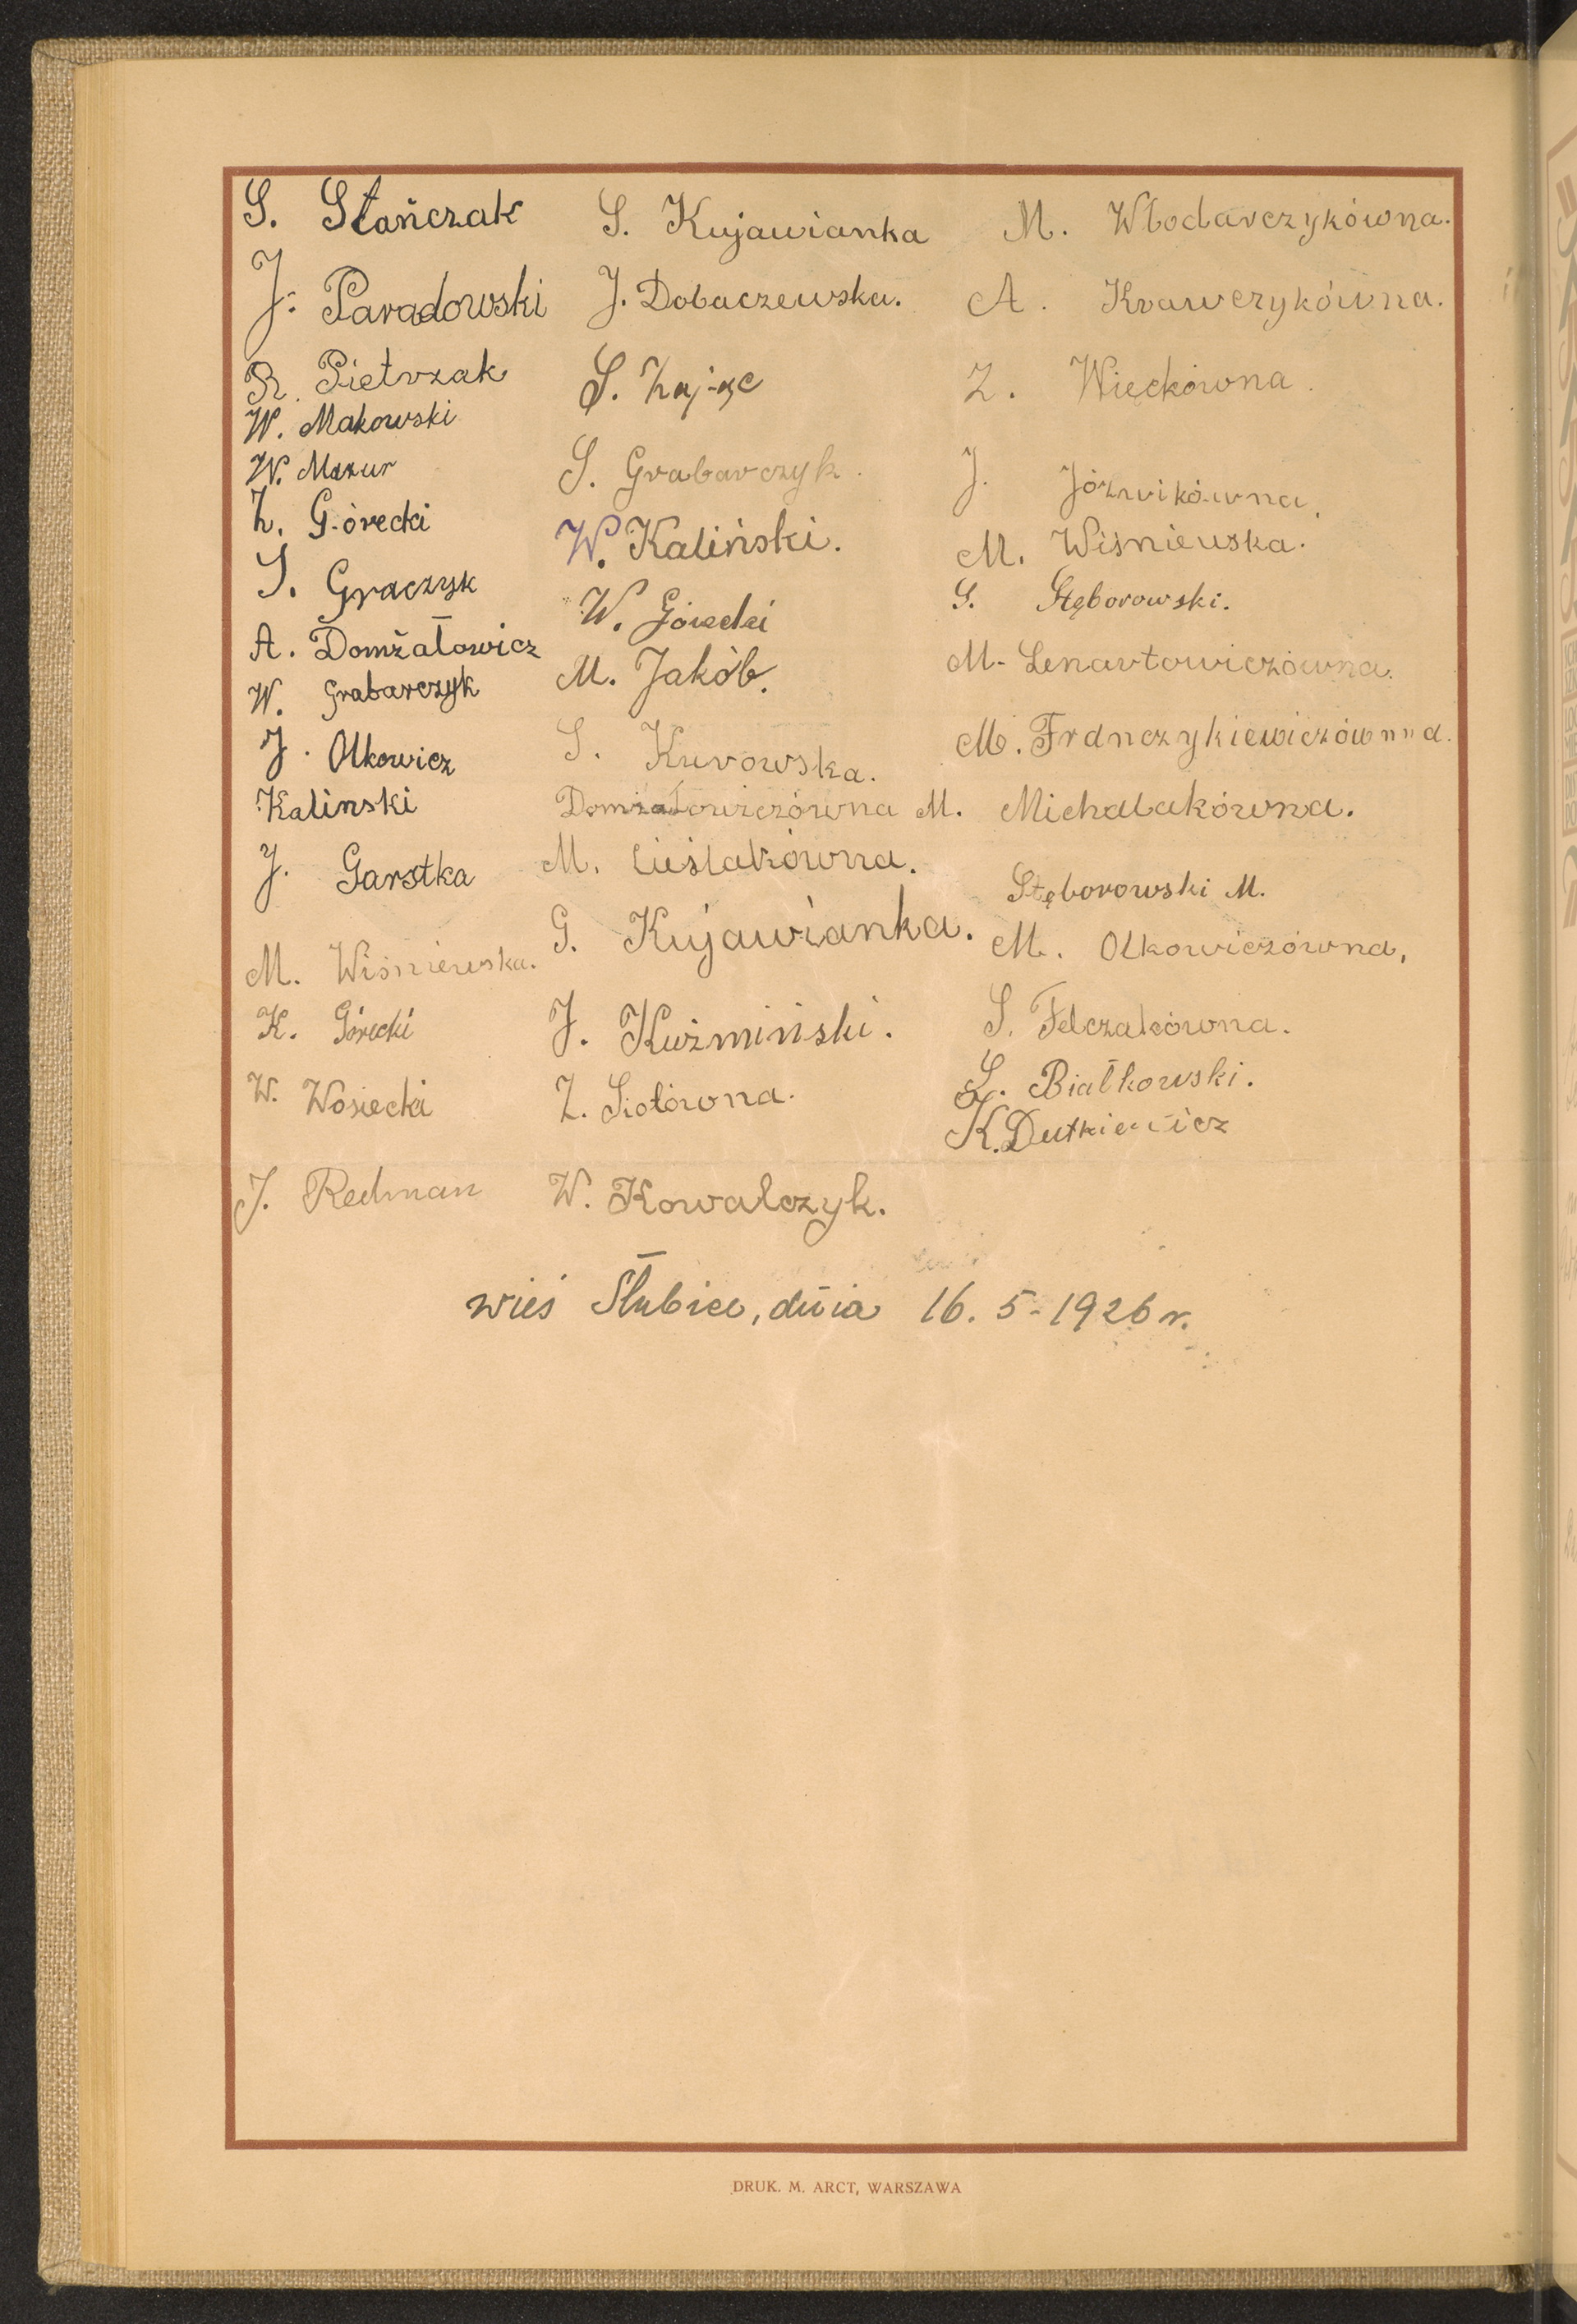 S. Stańczak
J. Paradowski
R. Pietrzak
W. Makowski
W. Mazur
Z. Górecki
S. Graczyk
A. Domżałowicz
W. Grabarczyk
J. Olkowicz
Kalinski
J. Garstka
M. Wiśniewska.
K. Górecki
W. Wosiecki
J. Redman
S. Kujawianka
J. Dobaczewska.
S. Zając
S. Grabarczyk.
W. Kaliński.
W. Górecki
M. Jakób.
S. Kurowska.
Domżałowiczówna M.
M. Cieślakówna.
G. Kujawianka.
J. Kuźmiński.
Z. Siotówna.
W. Kowalczyk.
M. Włodarczykówna.
A. Krawczykówna.
Z. Więckówna.
J. Jóźwikówna.
M. Wiśniewska.
S. Stęborowski.
M. Lenartowiczówna.
M. Franczykiewiczównna.
Michalakówna.
Stęborowski M.
M. Olkowiczówna,
S. Felczakówna.
L. Białkowski.
K. Dutkiewicz
wieś Słubice, dnia 16. 5-1926 r.
DRUK. M. ARCT, WARSZAWA